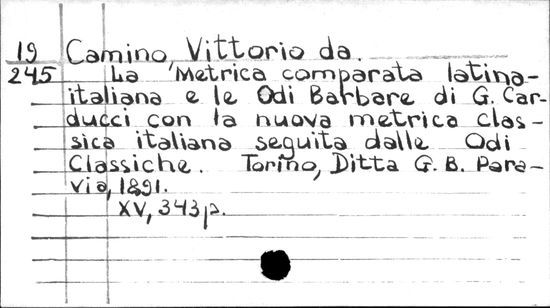 19 Camino, Vittorio da.
245 La Metrica comparata latina-
italiana e le Odi Barbare di G. Car-
ducci con la nuova metrica clas-
sica italiana seguita dalle Odi
Classiche. Torino, Ditta G. B. Para-
via, 1891.
XV, 343 p.